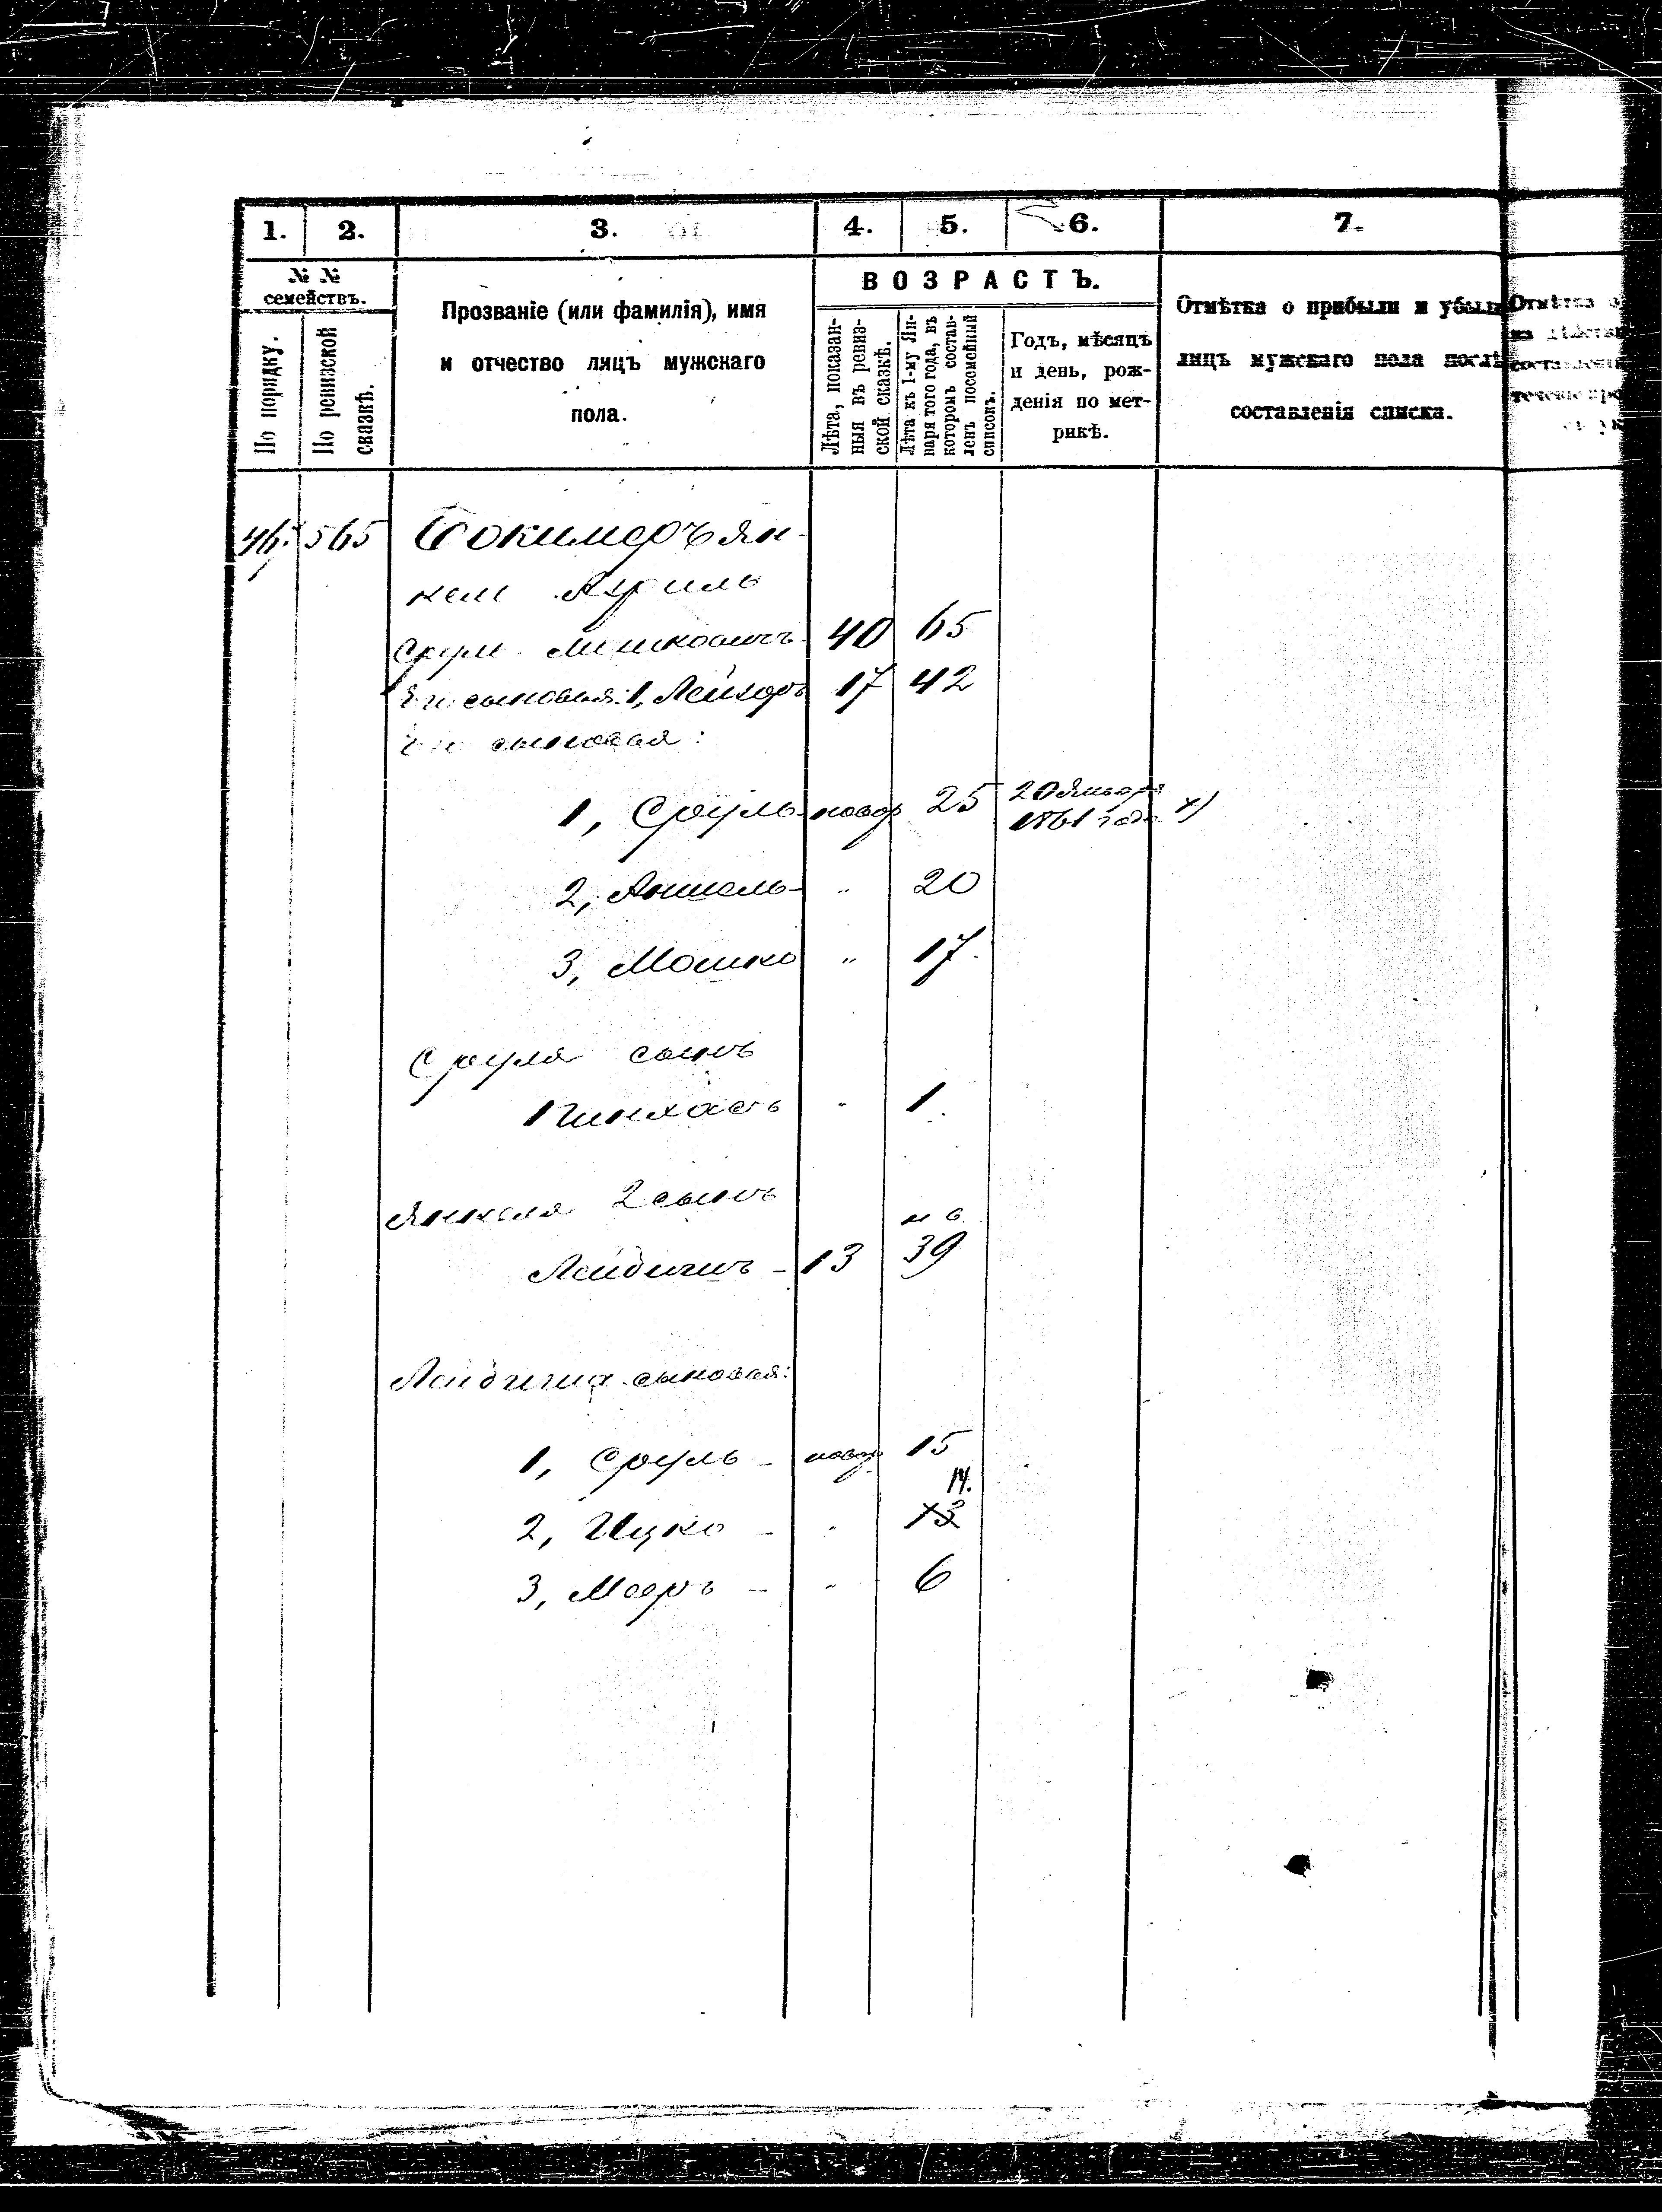 1. 2. 3. 4. 5. 6. 7.
№ №
семействъ.
По порядку.
По ревизской
сказкѣ.
Прозваніе (или фамилія), имя
и отчество лицъ мужскаго
пола.
ВОЗРАСТЪ.
Лѣта, показан-
ныя въ ревиз-
ской сказкѣ.
Лѣта къ 1-му Ян-
варя того года, въ
которомъ состав-
ленъ посемейный
списокъ.
Годъ, мѣсяцъ
и день, рож-
денія по мет-
рикѣ.
Отмѣтка о прибыли и убыли
лицъ мужскаго пола послѣ
составленія списка.
46. 565 Бокимеръ Ян-
кель
Сруль 40 65
Его сыновья: 1, Лейзоръ 17 42
Его сыновья:
1, Сруль новор 25 20 Января
1861 года х)
2, Аншель - " 20
3, Мошко " 17.
Сруля сынъ
Пинхасъ " 1.
Янкеля 2 сынъ
Лейбишъ - 13 39
Лейбиша сыновья:
1, Сруль - новор 15
14.
2, Ицко - " 13
3, Мееръ - " 6